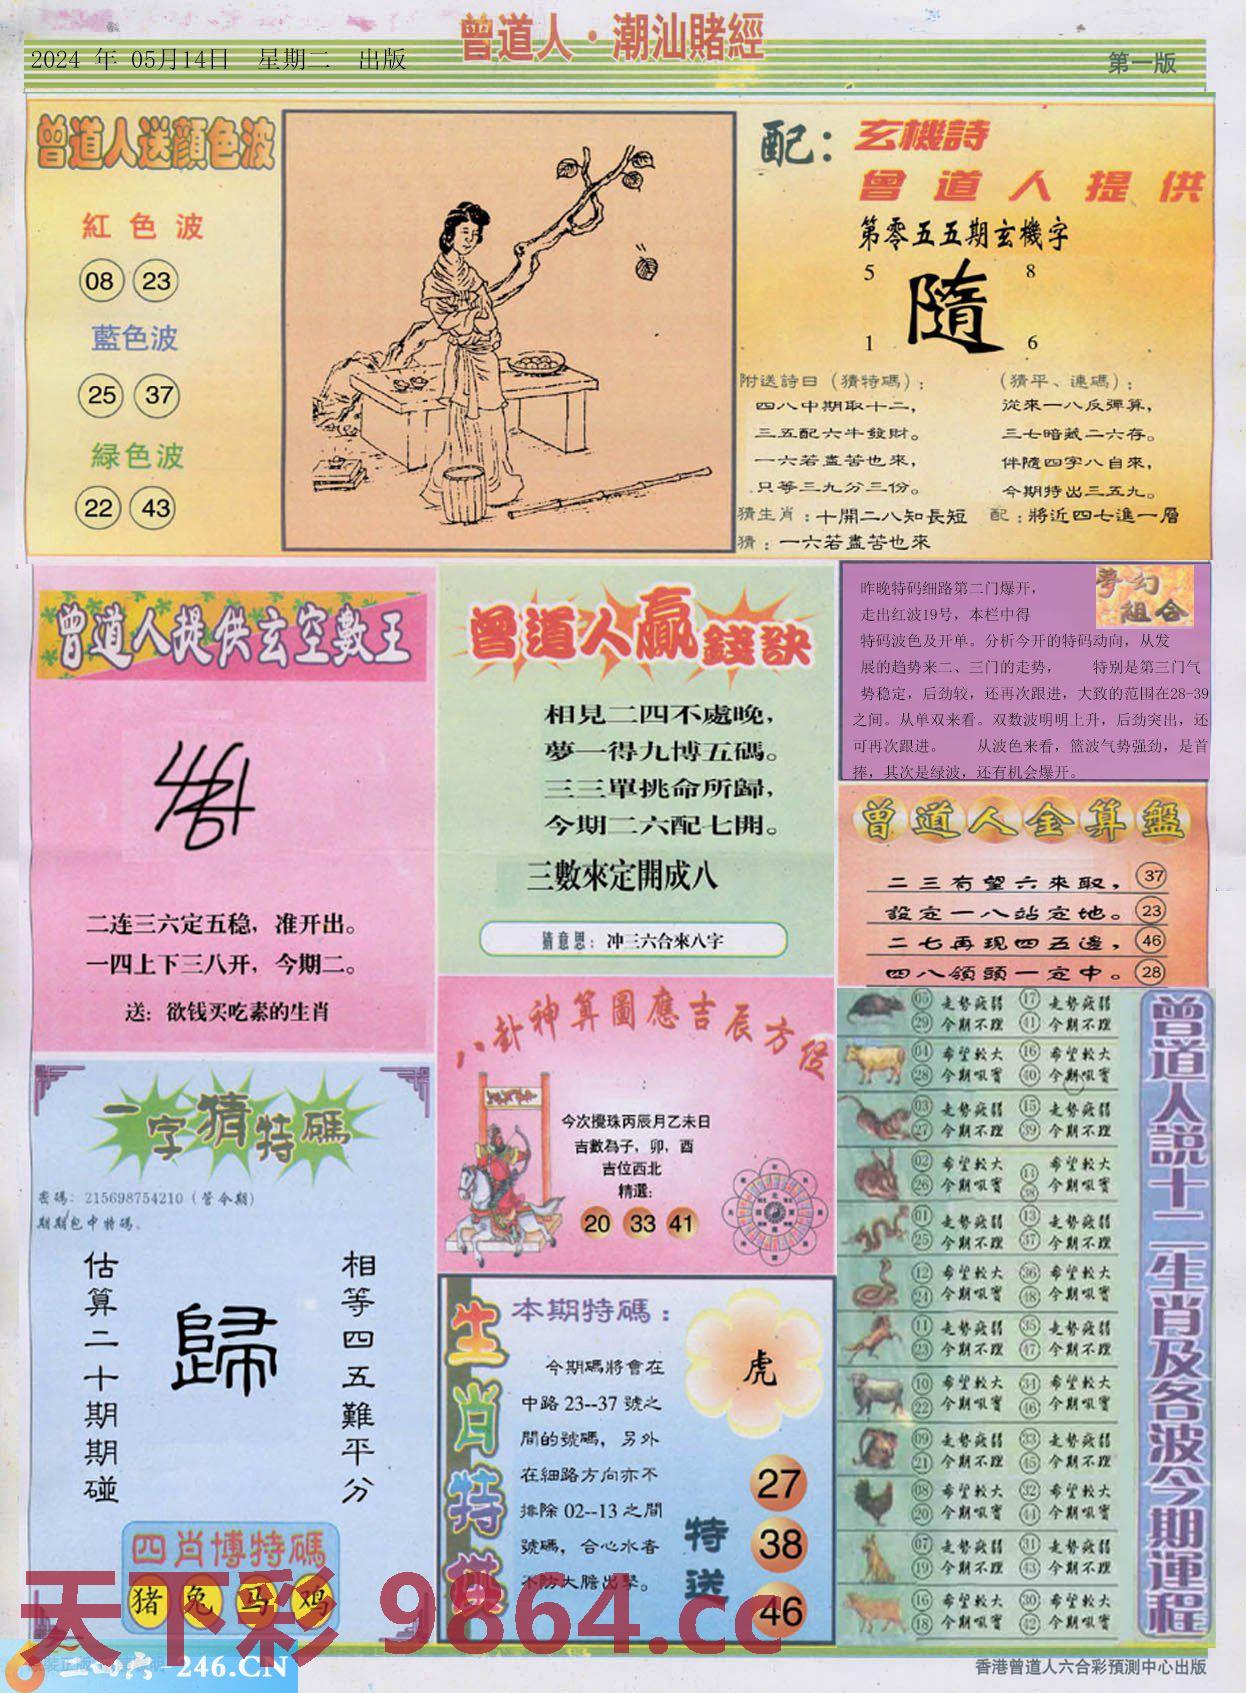 曾道人·潮汕賭經
2024 年 05月14日 星期二 出版
第一版
曾道人送顔色波
紅色波
08 23
藍色波
25 37
緑色波
22 43
配：
玄機詩
曾道人提供
第零五五期玄機字
5 8
隨
1 6
附送詩曰（猜特碼）：
四八中期取十二，
三五配六牛發財。
一六若盡苦也來，
只等三九分三份。
（猜平、連碼）；
從來一八反彈算，
三七暗藏二六存。
伴隨四字八自來，
今期特出三五九。
猜生肖：十開二八知長短 配：將近四七進一層
猜：一六若盡苦也來
曾道人提供玄空數王
二连三六定五稳，准开出。
一四上下三八开，今期二。
送：欲钱买吃素的生肖
曾道人贏錢訣
相見二四不處晚，
夢一得九博五碼。
三三單挑命所歸，
今期二六配七開。
三數來定開成八
猜意思：冲三六合來八字
夢幻組合
昨晚特码细路第二门爆开，
走出红波19号，本栏中得
特码波色及开单。分析今开的特码动向，从发
展的趋势来二、三门的走势， 特别是第三门气
势稳定，后劲较，还再次跟进，大致的范围在28-39
之间。从单双来看。双数波明明上升，后劲突出，还
可再次跟进。 从波色来看，篮波气势强劲，是首
捧，其次是绿波，还有机会爆开。
曾道人金算盤
二三有望六來取， 37
設定一八站定地。 23
二七再現四五邊， 46
四八領頭一定中。 28
八卦神算圖應吉辰方位
今次攪珠丙辰月乙未日
吉數為子，卯，酉
吉位西北
精選：
20 33 41
一字猜特碼
密碼：215698754210（管今期）
期期包中特碼。
估算二十期期碰
歸
相等四五難平分
四肖博特碼
猪 兔 马 鸡
生肖特供
本期特碼：
今期碼將會在
中路 23--37 號之
間的號碼，另外
在細路方向亦不
排除 02--13 之間
號碼，合心水者
不防大膽出擊。
虎
特送
27
38
46
曾道人説十二生肖及各波今期運程
05 走勢疲弱 17 走勢疲弱
29 今期不理 41 今期不理
04 希望較大 16 希望較大
28 今期吼實 40 今期吼實
03 走勢疲弱 15 走勢疲弱
27 今期不理 39 今期不理
02 希望較大 14 希望較大
26 今期吼實 38 今期吼實
01 走勢疲弱 13 走勢疲弱
25 今期不理 37 今期不理
12 希望較大 36 希望較大
24 今期吼實 48 今期吼實
11 走勢疲弱 35 走勢疲弱
23 今期不理 47 今期不理
10 希望較大 34 希望較大
22 今期吼實 46 今期吼實
09 走勢疲弱 33 走勢疲弱
21 今期不理 45 今期不理
08 希望較大 32 希望較大
20 今期吼實 44 今期吼實
07 走勢疲弱 31 走勢疲弱
19 今期不理 43 今期不理
16 希望較大 30 希望較大
18 今期吼實 42 今期吼實
天下彩 9864.cc
二四六-246.CN
香港曾道人六合彩預測中心出版